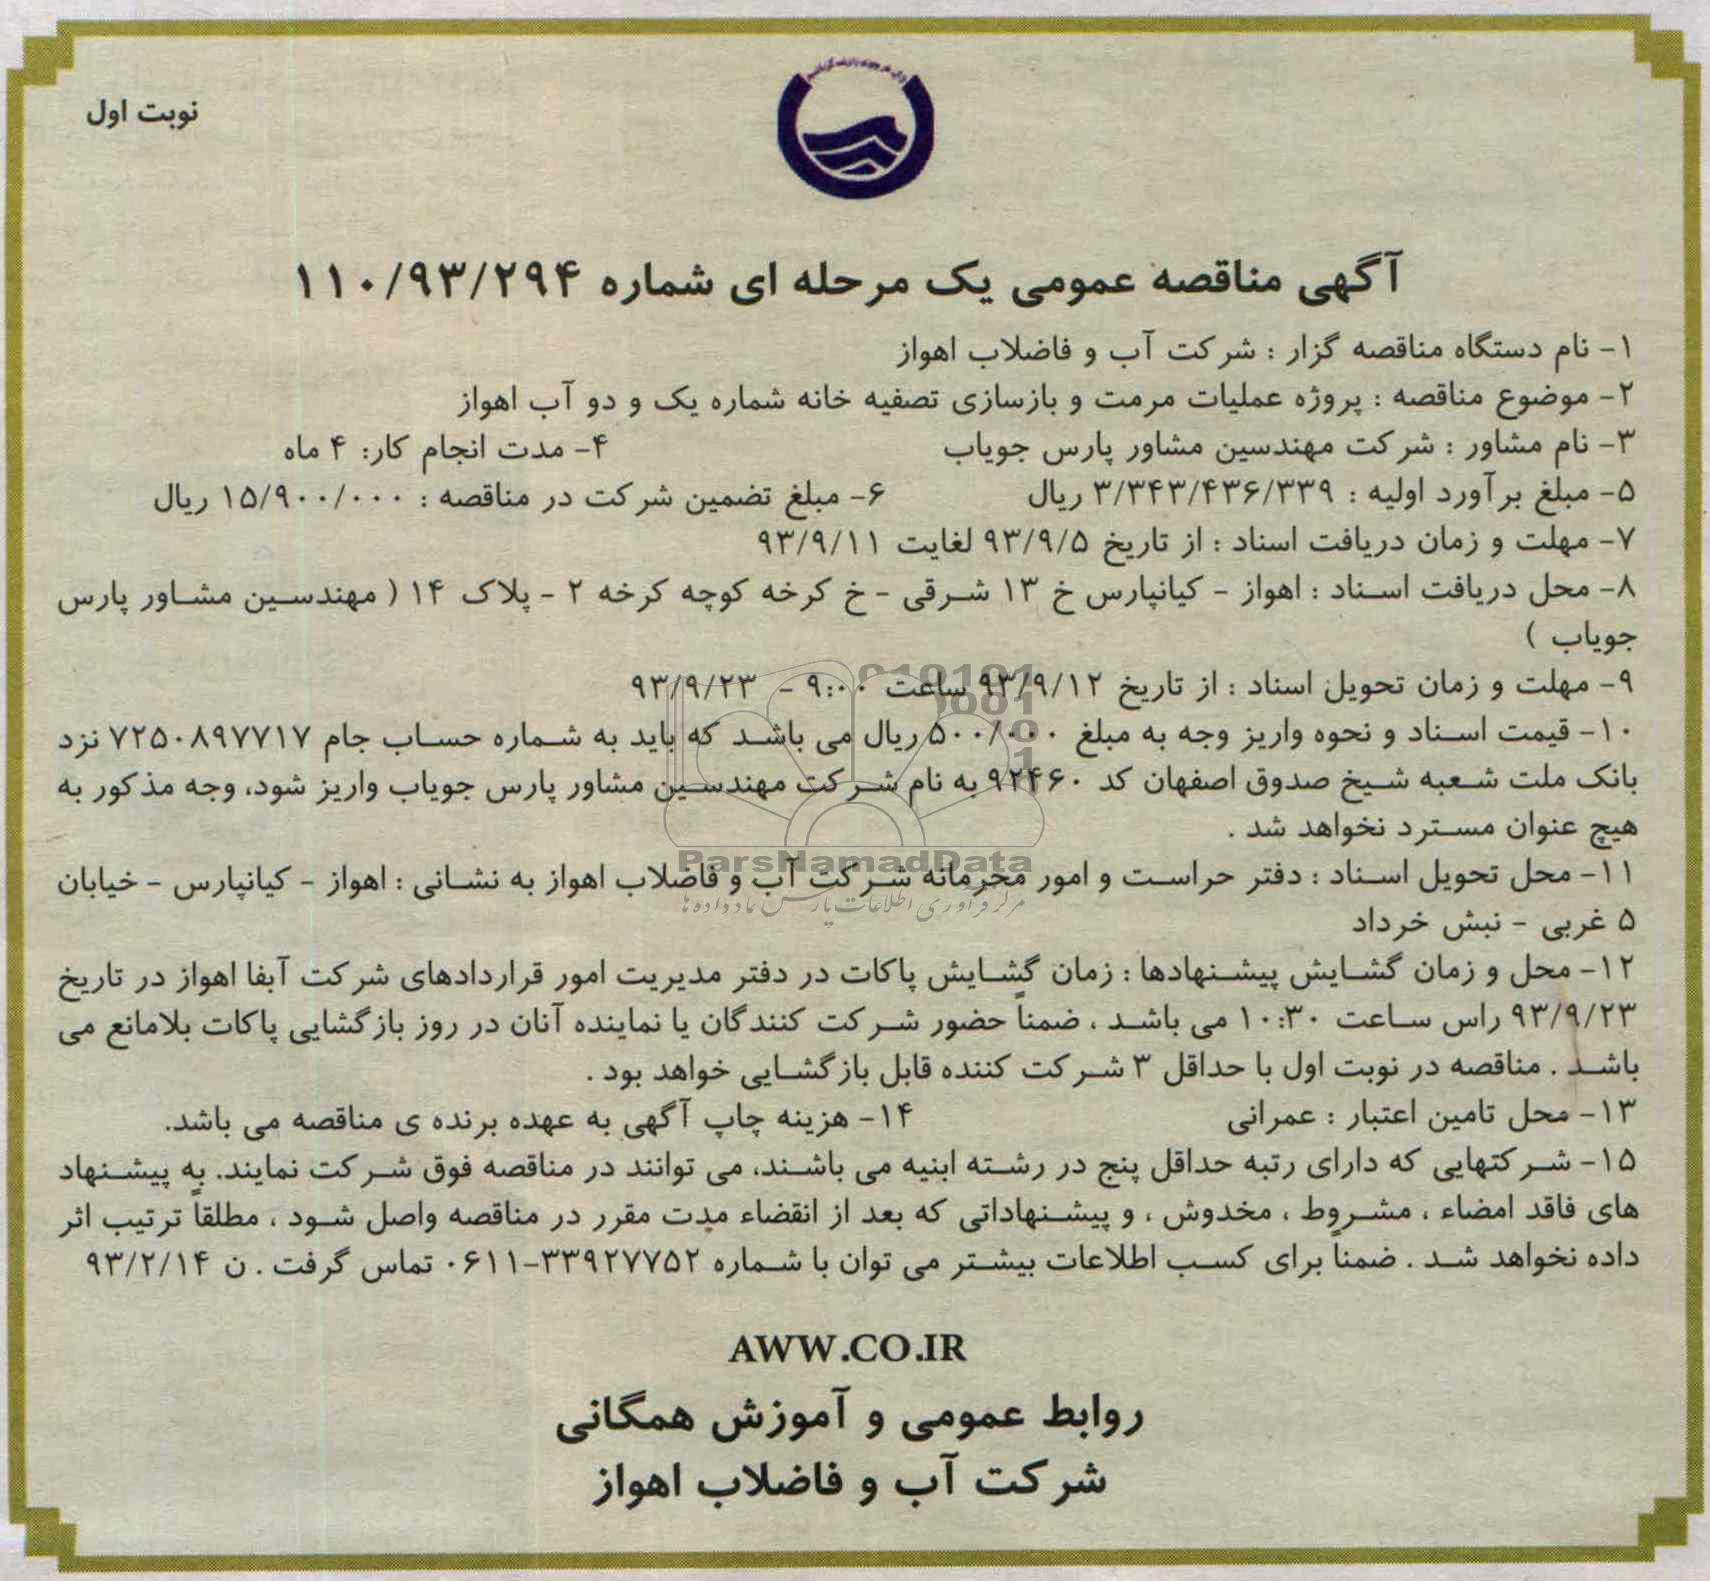 نوبت اول
آگهی مناقصه عمومی یک مرحله ای شماره ۱۱۰/۹۳/۲۹۴
۱- نام دستگاه مناقصه گزار : شرکت آب و فاضلاب اهواز
۲- موضوع مناقصه : پروژه عملیات مرمت و بازسازی تصفیه خانه شماره یک و دو آب اهواز
۳- نام مشاور : شرکت مهندسین مشاور پارس جویاب ۴- مدت انجام کار: ۴ ماه
۵- مبلغ برآورد اولیه : ۳/۳۴۳/۴۳۶/۳۳۹ ریال ۶- مبلغ تضمین شرکت در مناقصه : ۱۵/۹۰۰/۰۰۰ ریال
۷- مهلت و زمان دریافت اسناد : از تاریخ ۹۳/۹/۵ لغایت ۹۳/۹/۱۱
۸- محل دریافت اسناد : اهواز - کیانپارس خ ۱۳ شرقی - خ کرخه کوچه کرخه ۲ - پلاک ۱۴ ( مهندسین مشاور پارس
جویاب )
۹- مهلت و زمان تحویل اسناد : از تاریخ ۹۳/۹/۱۲ ساعت ۹:۰۰ - ۹۳/۹/۲۳
۱۰- قیمت اسناد و نحوه واریز وجه به مبلغ ۵۰۰/۰۰۰ ریال می باشد که باید به شماره حساب جام ۷۲۵۰۸۹۷۷۱۷ نزد
بانک ملت شعبه شیخ صدوق اصفهان کد ۹۲۴۶۰ به نام شرکت مهندسین مشاور پارس جویاب واریز شود، وجه مذکور به
هیچ عنوان مسترد نخواهد شد .
ParsNamadData
۱۱- محل تحویل اسناد : دفتر حراست و امور محرمانه شرکت آب و فاضلاب اهواز به نشانی : اهواز - کیانپارس - خیابان
مرکز فرآوری اطلاعات پارس نماد داده ها
۵ غربی - نبش خرداد
۱۲- محل و زمان گشایش پیشنهادها : زمان گشایش پاکات در دفتر مدیریت امور قراردادهای شرکت آبفا اهواز در تاریخ
۹۳/۹/۲۳ راس ساعت ۱۰:۳۰ می باشد ، ضمناً حضور شرکت کنندگان یا نماینده آنان در روز بازگشایی پاکات بلامانع می
باشد . مناقصه در نوبت اول با حداقل ۳ شرکت کننده قابل بازگشایی خواهد بود .
۱۳- محل تامین اعتبار : عمرانی ۱۴- هزینه چاپ آگهی به عهده برنده ی مناقصه می باشد.
۱۵- شرکتهایی که دارای رتبه حداقل پنج در رشته ابنیه می باشند، می توانند در مناقصه فوق شرکت نمایند. به پیشنهاد
های فاقد امضاء ، مشروط ، مخدوش ، و پیشنهاداتی که بعد از انقضاء مدت مقرر در مناقصه واصل شود ، مطلقاً ترتیب اثر
داده نخواهد شد . ضمناً برای کسب اطلاعات بیشتر می توان با شماره ۳۳۹۲۷۷۵۲-۰۶۱۱ تماس گرفت . ن ۹۳/۲/۱۴
AWW.CO.IR
روابط عمومی و آموزش همگانی
شرکت آب و فاضلاب اهواز